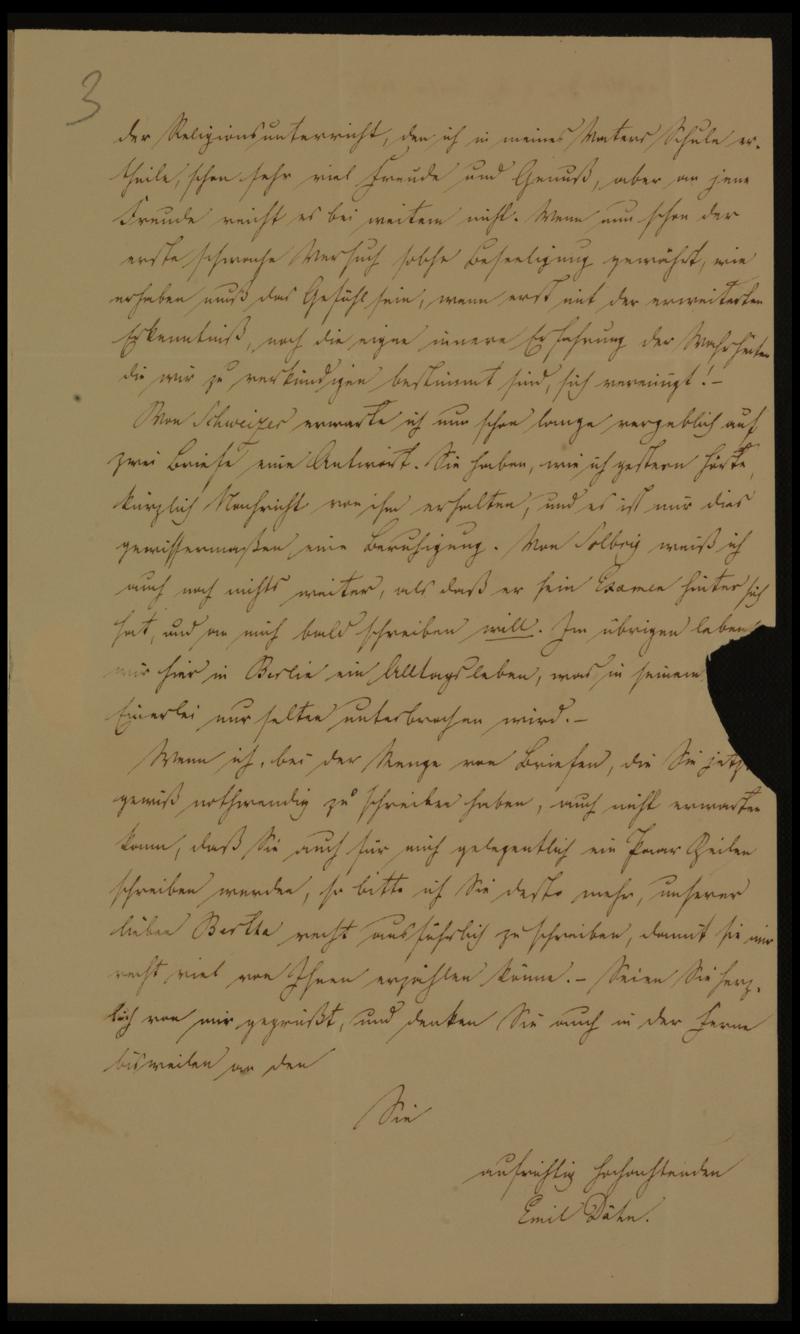 3
der Religionsunterricht, den ich in meines Vaters Schule er-
theile, schon sehr viel Freude und Genuß, aber an jene
Freude reicht es bei weitem nicht. Wenn nun schon der
erste schwache Versuch solche Beseeligung gewährt, wie
erhaben muß das Gefühl sein, wenn erst mit der erweiterten
Erkenntniß, noch die eigne innere Erfahrung der Wahrheiten
die wir zu verkündigen bestimmt sind, sich vereinigt! –
Von Schweizer erwarte ich nun schon lange vergeblich auf
zwei Briefe eine Antwort. Sie haben, wie ich gestern hörte,
kürzlich Nachricht von ihm erhalten, und es ist mir dies
gewissermaßen eine Beruhigung. Von Solbrig weiß ich
auch noch nichts weiter, als daß er sein Examen hinter sich
hat, und an mich bald schreiben will. Im übrigen leben
wir hier in Berlin ein Alltagsleben, was in seinem
Einerlei nur selten unterbrochen wird. –
Wenn ich, bei der Menge von Briefen, die Sie jetzt
gewiß nothwendig zu schreiben haben, auch nicht erwarten
kann, daß Sie auch für mich gelegentlich ein Paar Zeilen
schreiben werden, so bitte ich Sie desto mehr, unserer
lieben Bertha recht ausführlich zu schreiben, damit sie mir
recht viel von Ihnen erzählen könne. – Seien Sie herz-
lich von mir gegrüßt, und denken Sie auch in der Ferne
bisweilen an den
Sie
aufrichtig hochachtenden
Emil Dähn.